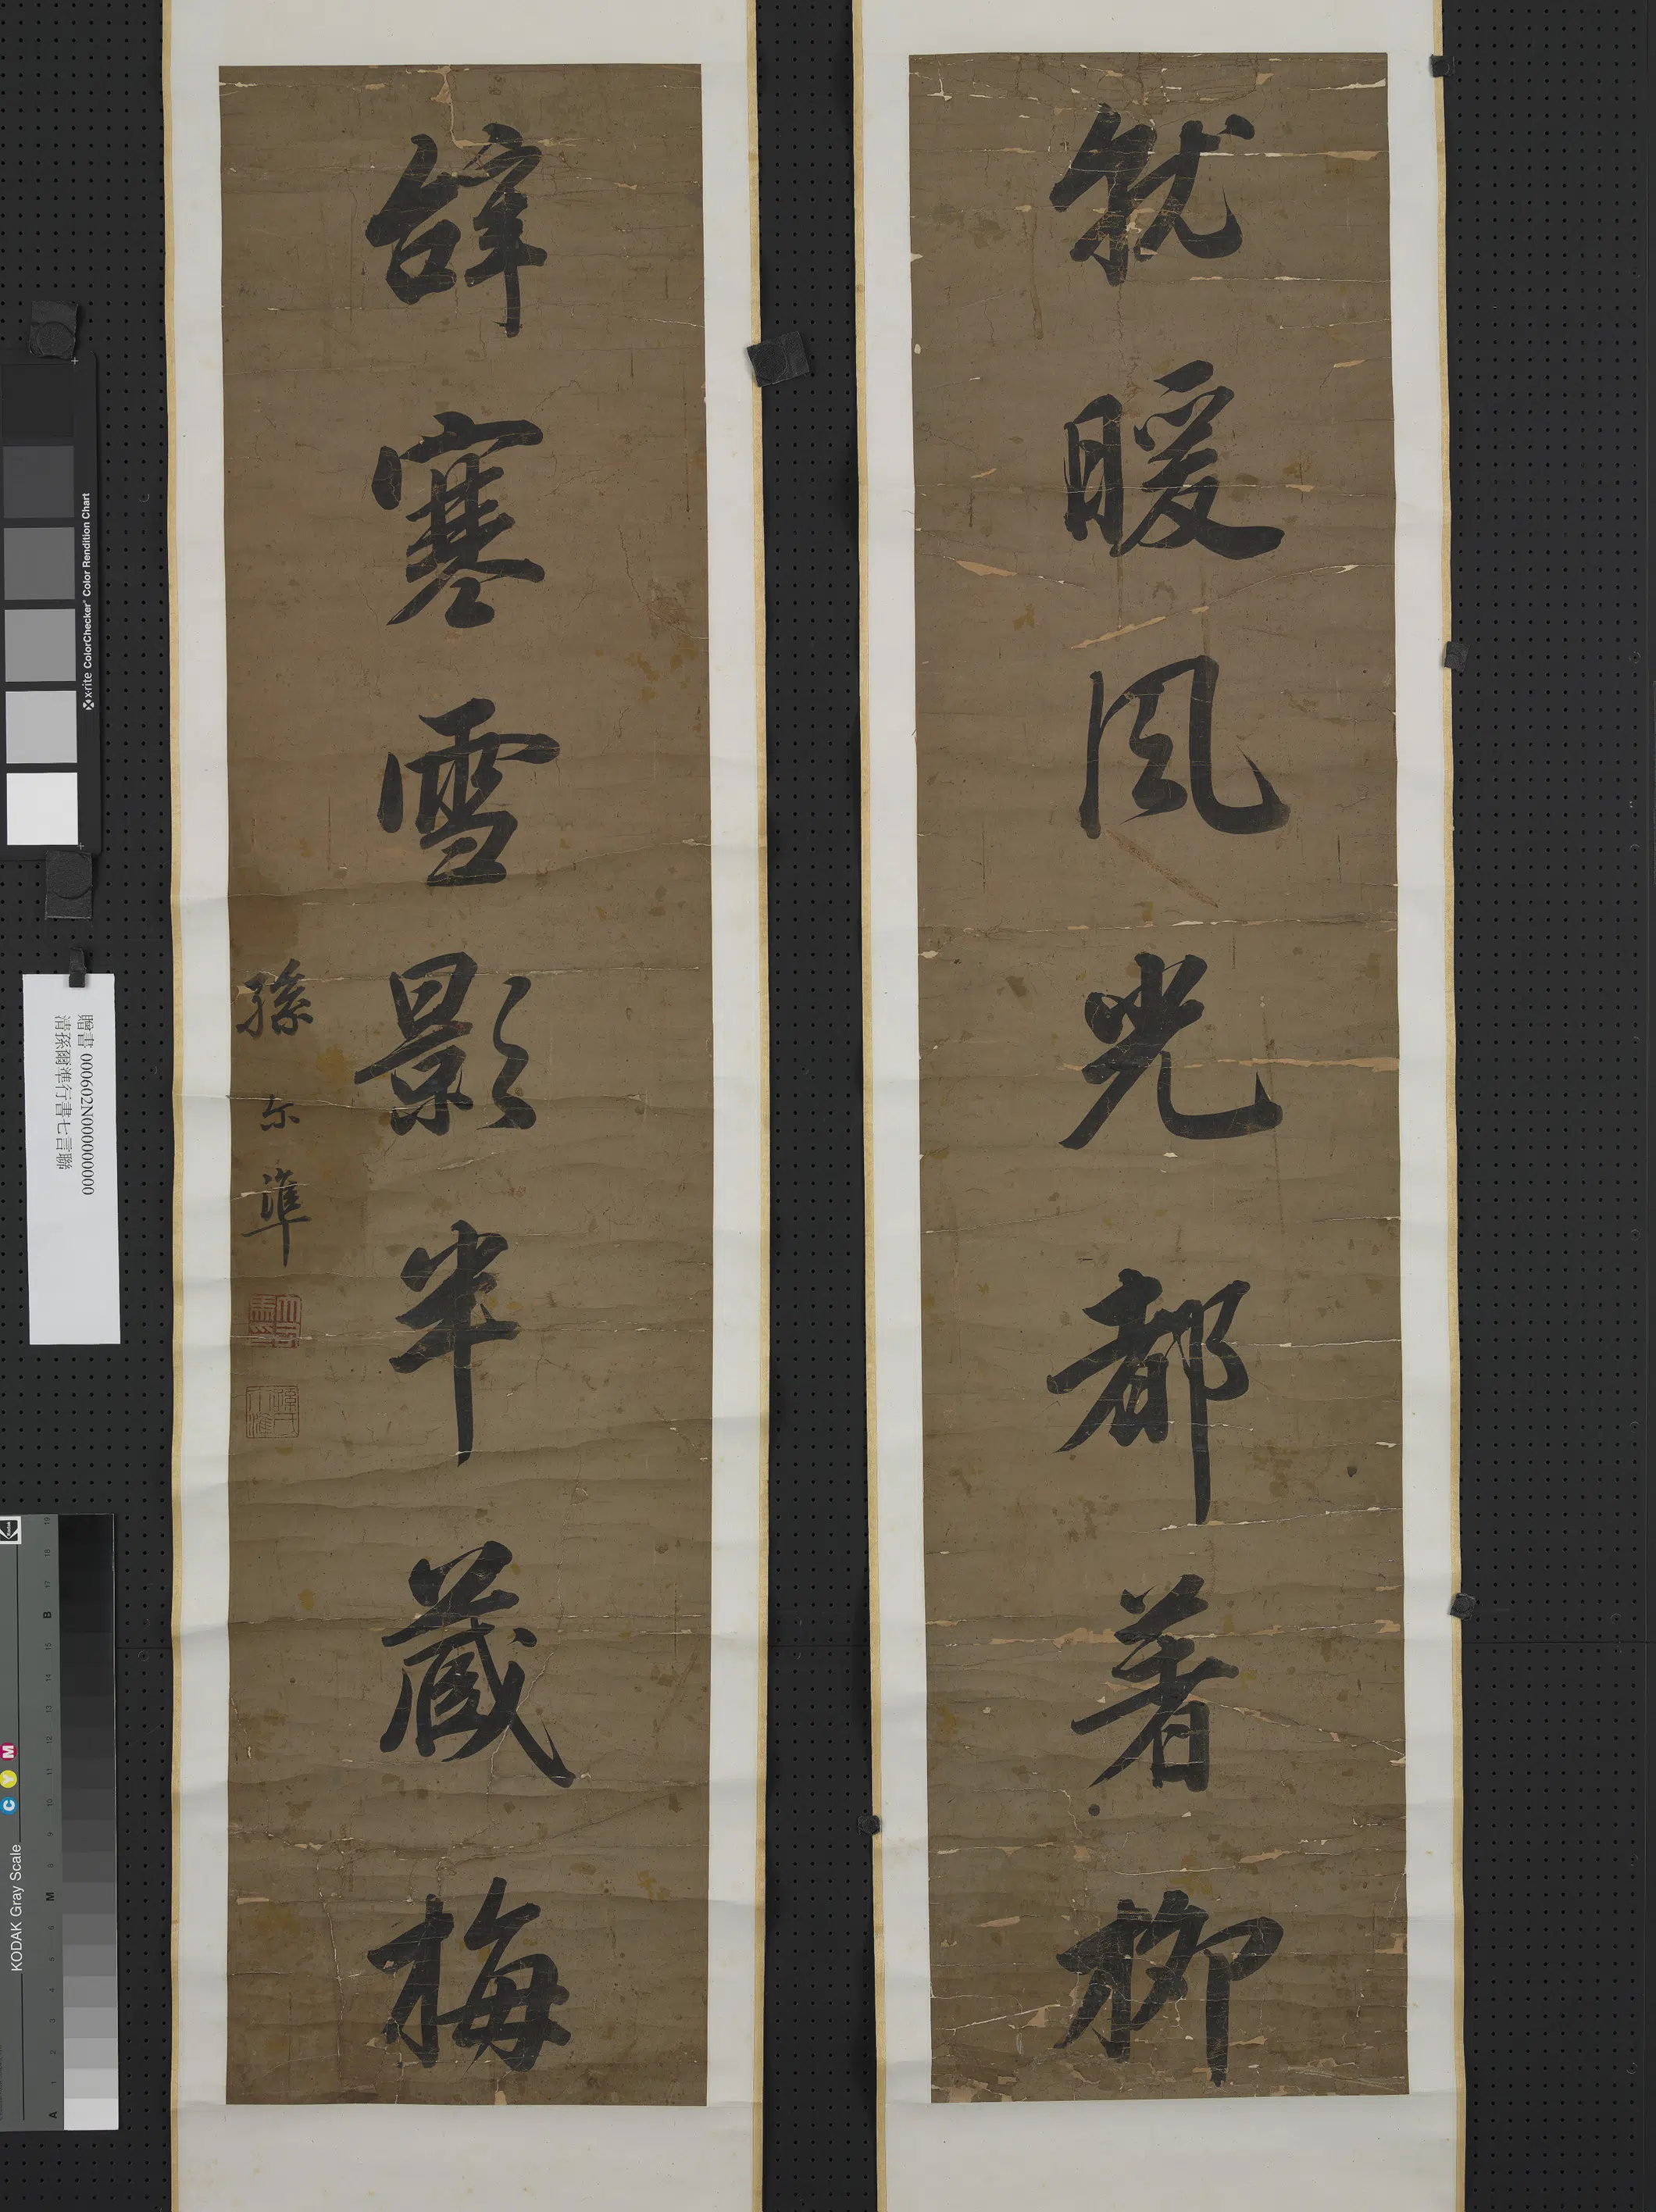 就暖風光都著柳
辝寒雪影半蔵梅
孫尔準
贈書 000602N000000000
清孫爾準行書七言聯
x-rite ColorChecker Color Rendition Chart
KODAK Gray Scale
C Y M
Kodak
A 1 2 3 4 5 6 M 8 9 10 11 12 13 14 15 B 17 18 19